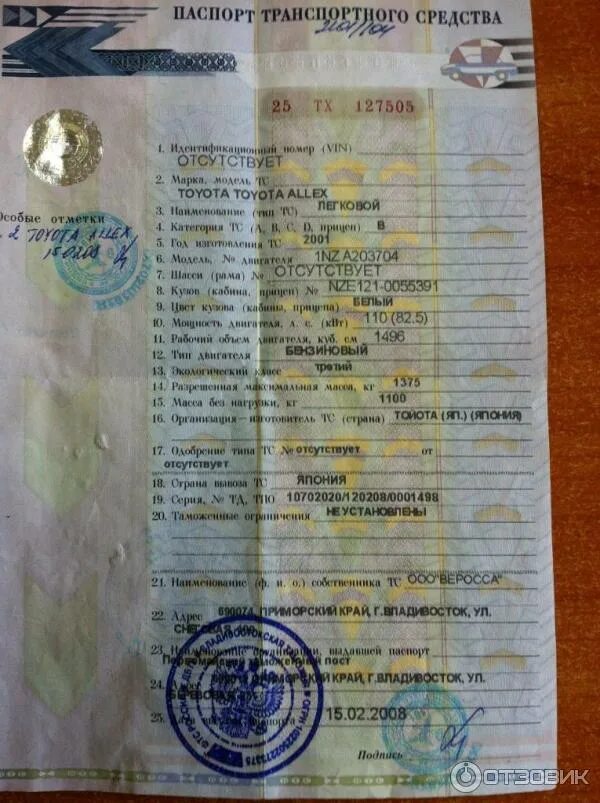 ПАСПОРТ ТРАНСПОРТНОГО СРЕДСТВА
25 ТХ 127505
1. Идентификационный номер (VIN)
ОТСУТСТВУЕТ
2. Марка, модель ТС
TOYOTA TOYOTA ALLEX
3. Наименование (тип ТС) ЛЕГКОВОЙ
4. Категория ТС (A, B, C, D, прицеп) B
5. Год изготовления ТС 2001
6. Модель, № двигателя 1NZ A203704
7. Шасси (рама) № ОТСУТСТВУЕТ
8. Кузов (кабина, прицеп) № NZE121-0055391
9. Цвет кузова (кабины, прицепа) БЕЛЫЙ
10. Мощность двигателя, л. с. (кВт) 110 (82.5)
11. Рабочий объем двигателя, куб. см 1496
12. Тип двигателя БЕНЗИНОВЫЙ
13. Экологический класс третий
14. Разрешенная максимальная масса, кг 1375
15. Масса без нагрузки, кг 1100
16. Организация—изготовитель ТС (страна) ТОЙОТА (ЯП.) (ЯПОНИЯ)
17. Одобрение типа ТС № отсутствует от
отсутствует
18. Страна вывоза ТС ЯПОНИЯ
19. Серия, № ТД, ТПО 10702020/120208/0001498
20. Таможенные ограничения НЕ УСТАНОВЛЕНЫ
21. Наименование (ф. и. о.) собственника ТС ООО"ВЕРОССА"
22. Адрес 690074, ПРИМОРСКИЙ КРАЙ, Г.ВЛАДИВОСТОК, УЛ.
23. Наименование организации, выдавшей паспорт
Первомайский таможенный пост
24. ПРИМОРСКИЙ КРАЙ, Г.ВЛАДИВОСТОК, УЛ.
25. паспорта 15.02.2008
Подпись
Особые отметки
2 TOYOTA ALLEX
ОТЗОВИК